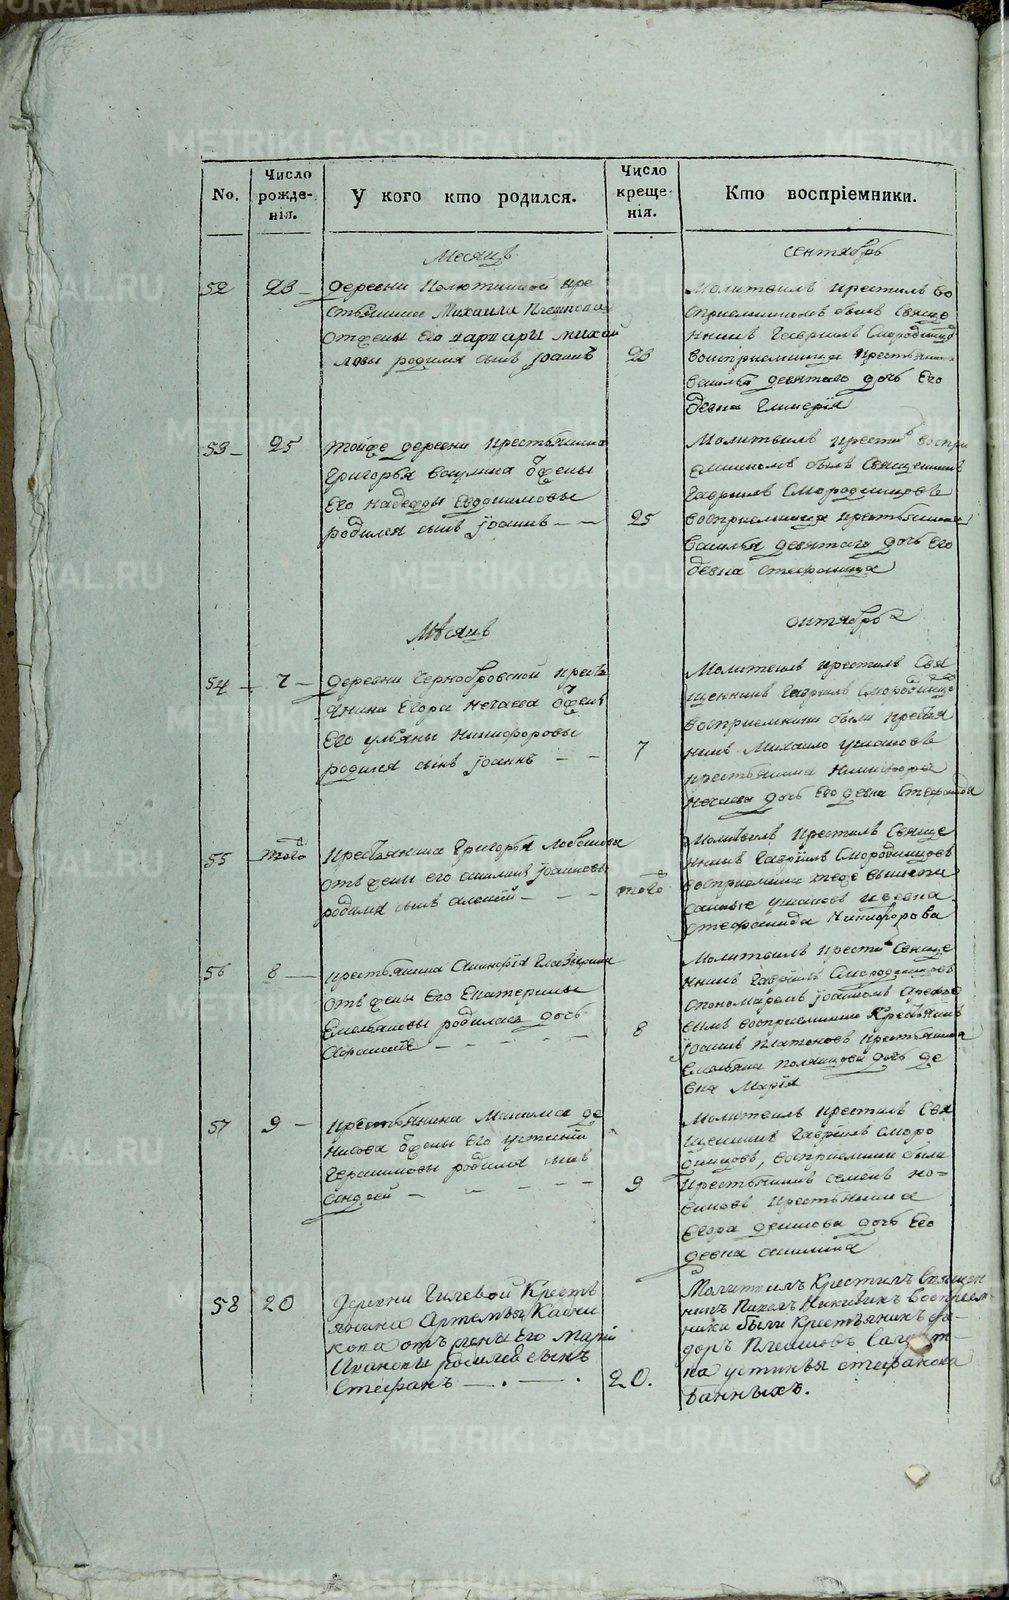 No.
Число рожде-нія.
У кого кто родился.
Число креще-нія.
Кто воспріемники.
Месяцъ
сентябрь
52
23
деревни Полютиной кре
стьянина Михаила Плешкова
отжены Его Варвары Михай
ловы родился сынъ Іоаннъ
23
Молитвилъ крестилъ во
спріемникомъ былъ Свяще
нникъ Гавріилъ Смородинцов
восприемница крестьянина
Василья девятаго дочь Его
девка Гликерія
53
25
тойже деревни крестьянина
Григорья Ваулина Ѿжены
Его Надежды Евдокимовы
родился сынъ Іоаннъ
25
Молитвилъ крестил воспри
емникомъ былъ Священникъ
Гавріилъ Смородинцовъ
восприемница крестьянина
Василья девятаго дочь Его
девка Стефанида
Мѣсяцъ
октябрь
54
7
Деревни Чернобровской крестья
янина Егора Нечаева Ѿжены
Его Ульяны Никифоровы
родился сынъ Іоаннъ
7
Молитвилъ крестилъ Свя
щенникъ Гавріилъ Смородинцо
восприемники были крестья
нинъ Михайло Ушаковъ
крестьянина Никифора
Нечаева дочь Его девка Стефанида
55
того
Крестьянина Григорья
отъ жены его Іоанновы
родился сынъ Алексей
того
Молитвилъ крестилъ Свяще
нникъ Гавріилъ Смородинцовъ
восприемники теже вышепи
санные Ушаковъ и девка
Стефанида Никифорова
56
8
Крестьянина
отъ жены Его Екатерины
Емельяновы родилась дочь
8
Молитвилъ крестил Свяще
нникъ Гавріилъ Смородинцовъ
спономаремъ Іоанномъ Арефье
вымъ восприемники Крестьянинъ
Іоаннъ Платоновъ крестьянина
Емельяна дочь де
вка Марія
57
9
Крестьянина Максима де
нисова Ѿжены Его Устиніи
Герасимовы родился сынъ
Андрей
9
Молитвилъ крестилъ Свя
щенникъ Гавріилъ Сморо
динцовъ, восприемники были
Крестьянинъ Семенъ но-
виковъ Крестьянина
Егора денисова дочь Его
девка
58
20
Деревни Гилевой Кресть
янина Артемья
кова отъ жены Его Маріи
Ивановы родился сынъ
Стефанъ
20.
Молитвилъ Крестилъ Священ
никъ Павелъ Никитинъ Воспріем-
ники были Крестьянинъ фе-
доръ Плешковъ
на устинья стефанова
METRIKI.GASO-URAL.RU